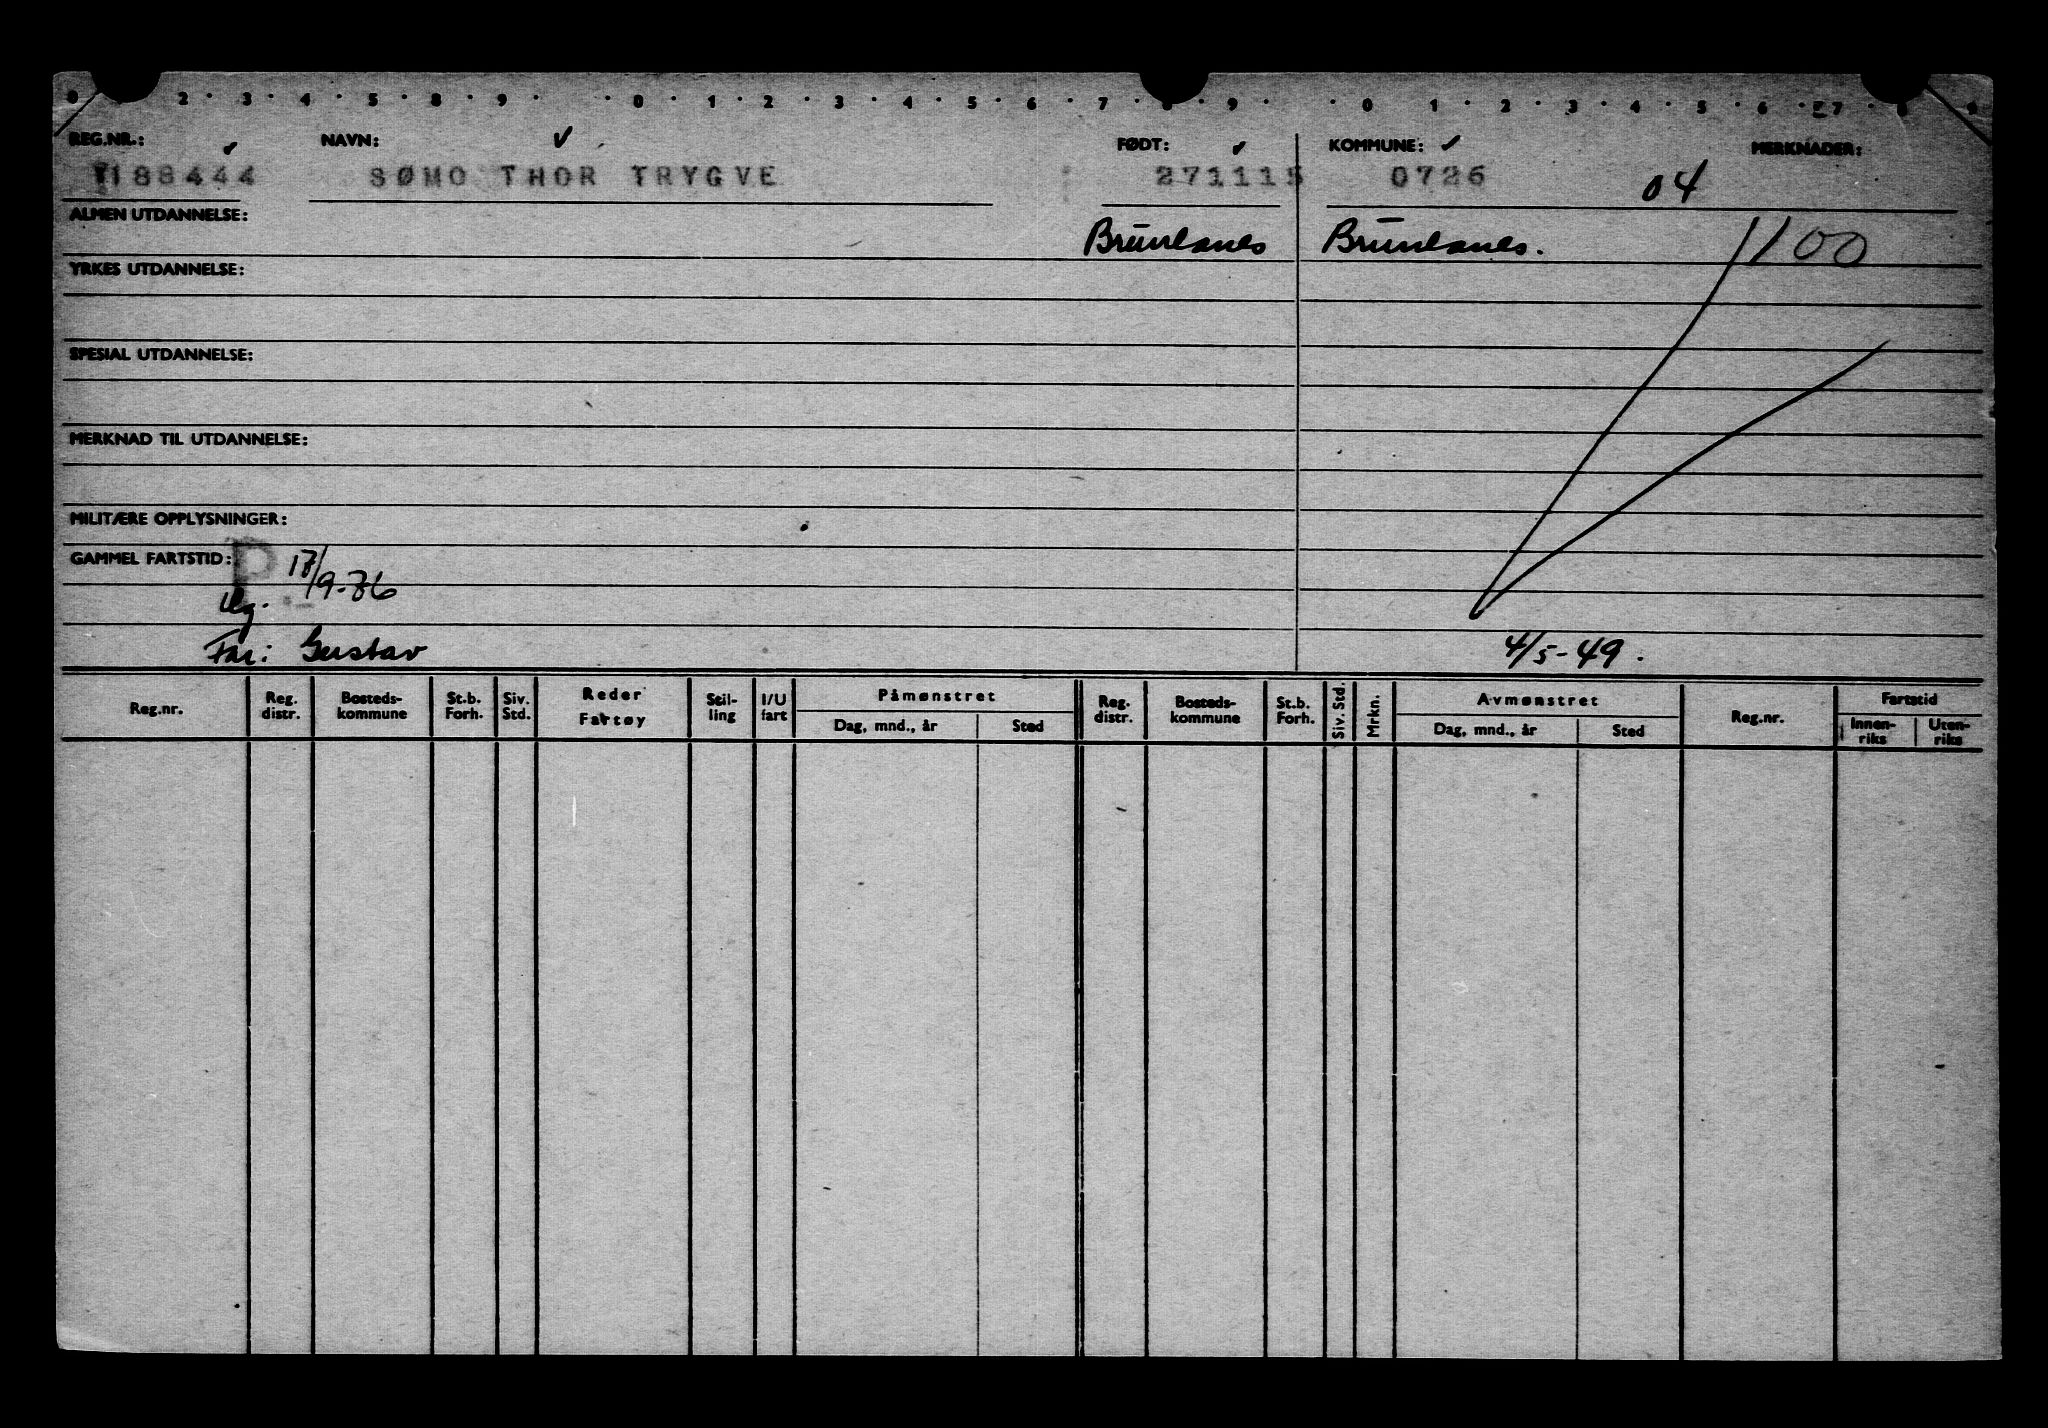 0 2 3 4 5 8 9 0 1 2 3 4 5 6 7 8 9 0 1 2 3 4 5 6 7 8 9
REG.NR.: NAVN: FØDT: KOMMUNE: MERKNADER:
188444 SØMO THOR TRYGVE 271115 0726 04
ALMEN UTDANNELSE:
Brunlanes Brunlanes. 1100
YRKES UTDANNELSE:
SPESIAL UTDANNELSE:
MERKNAD TIL UTDANNELSE:
MILITÆRE OPPLYSNINGER:
GAMMEL FARTSTID: P 17/9-36
Far: Gustav 4/5-49.
Reg.nr. Reg. distr. Bosteds-kommune St.b. Forh. Siv. Std. Reder Fartøy Stil-ling I/U fart Påmønstret Dag, mnd., år Sted Reg. distr. Bosteds-kommune St.b. Forh. Siv. Std. Mrkn. Avmønstret Dag, mnd., år Sted Reg.nr. Fartstid Innen-riks Uten-riks